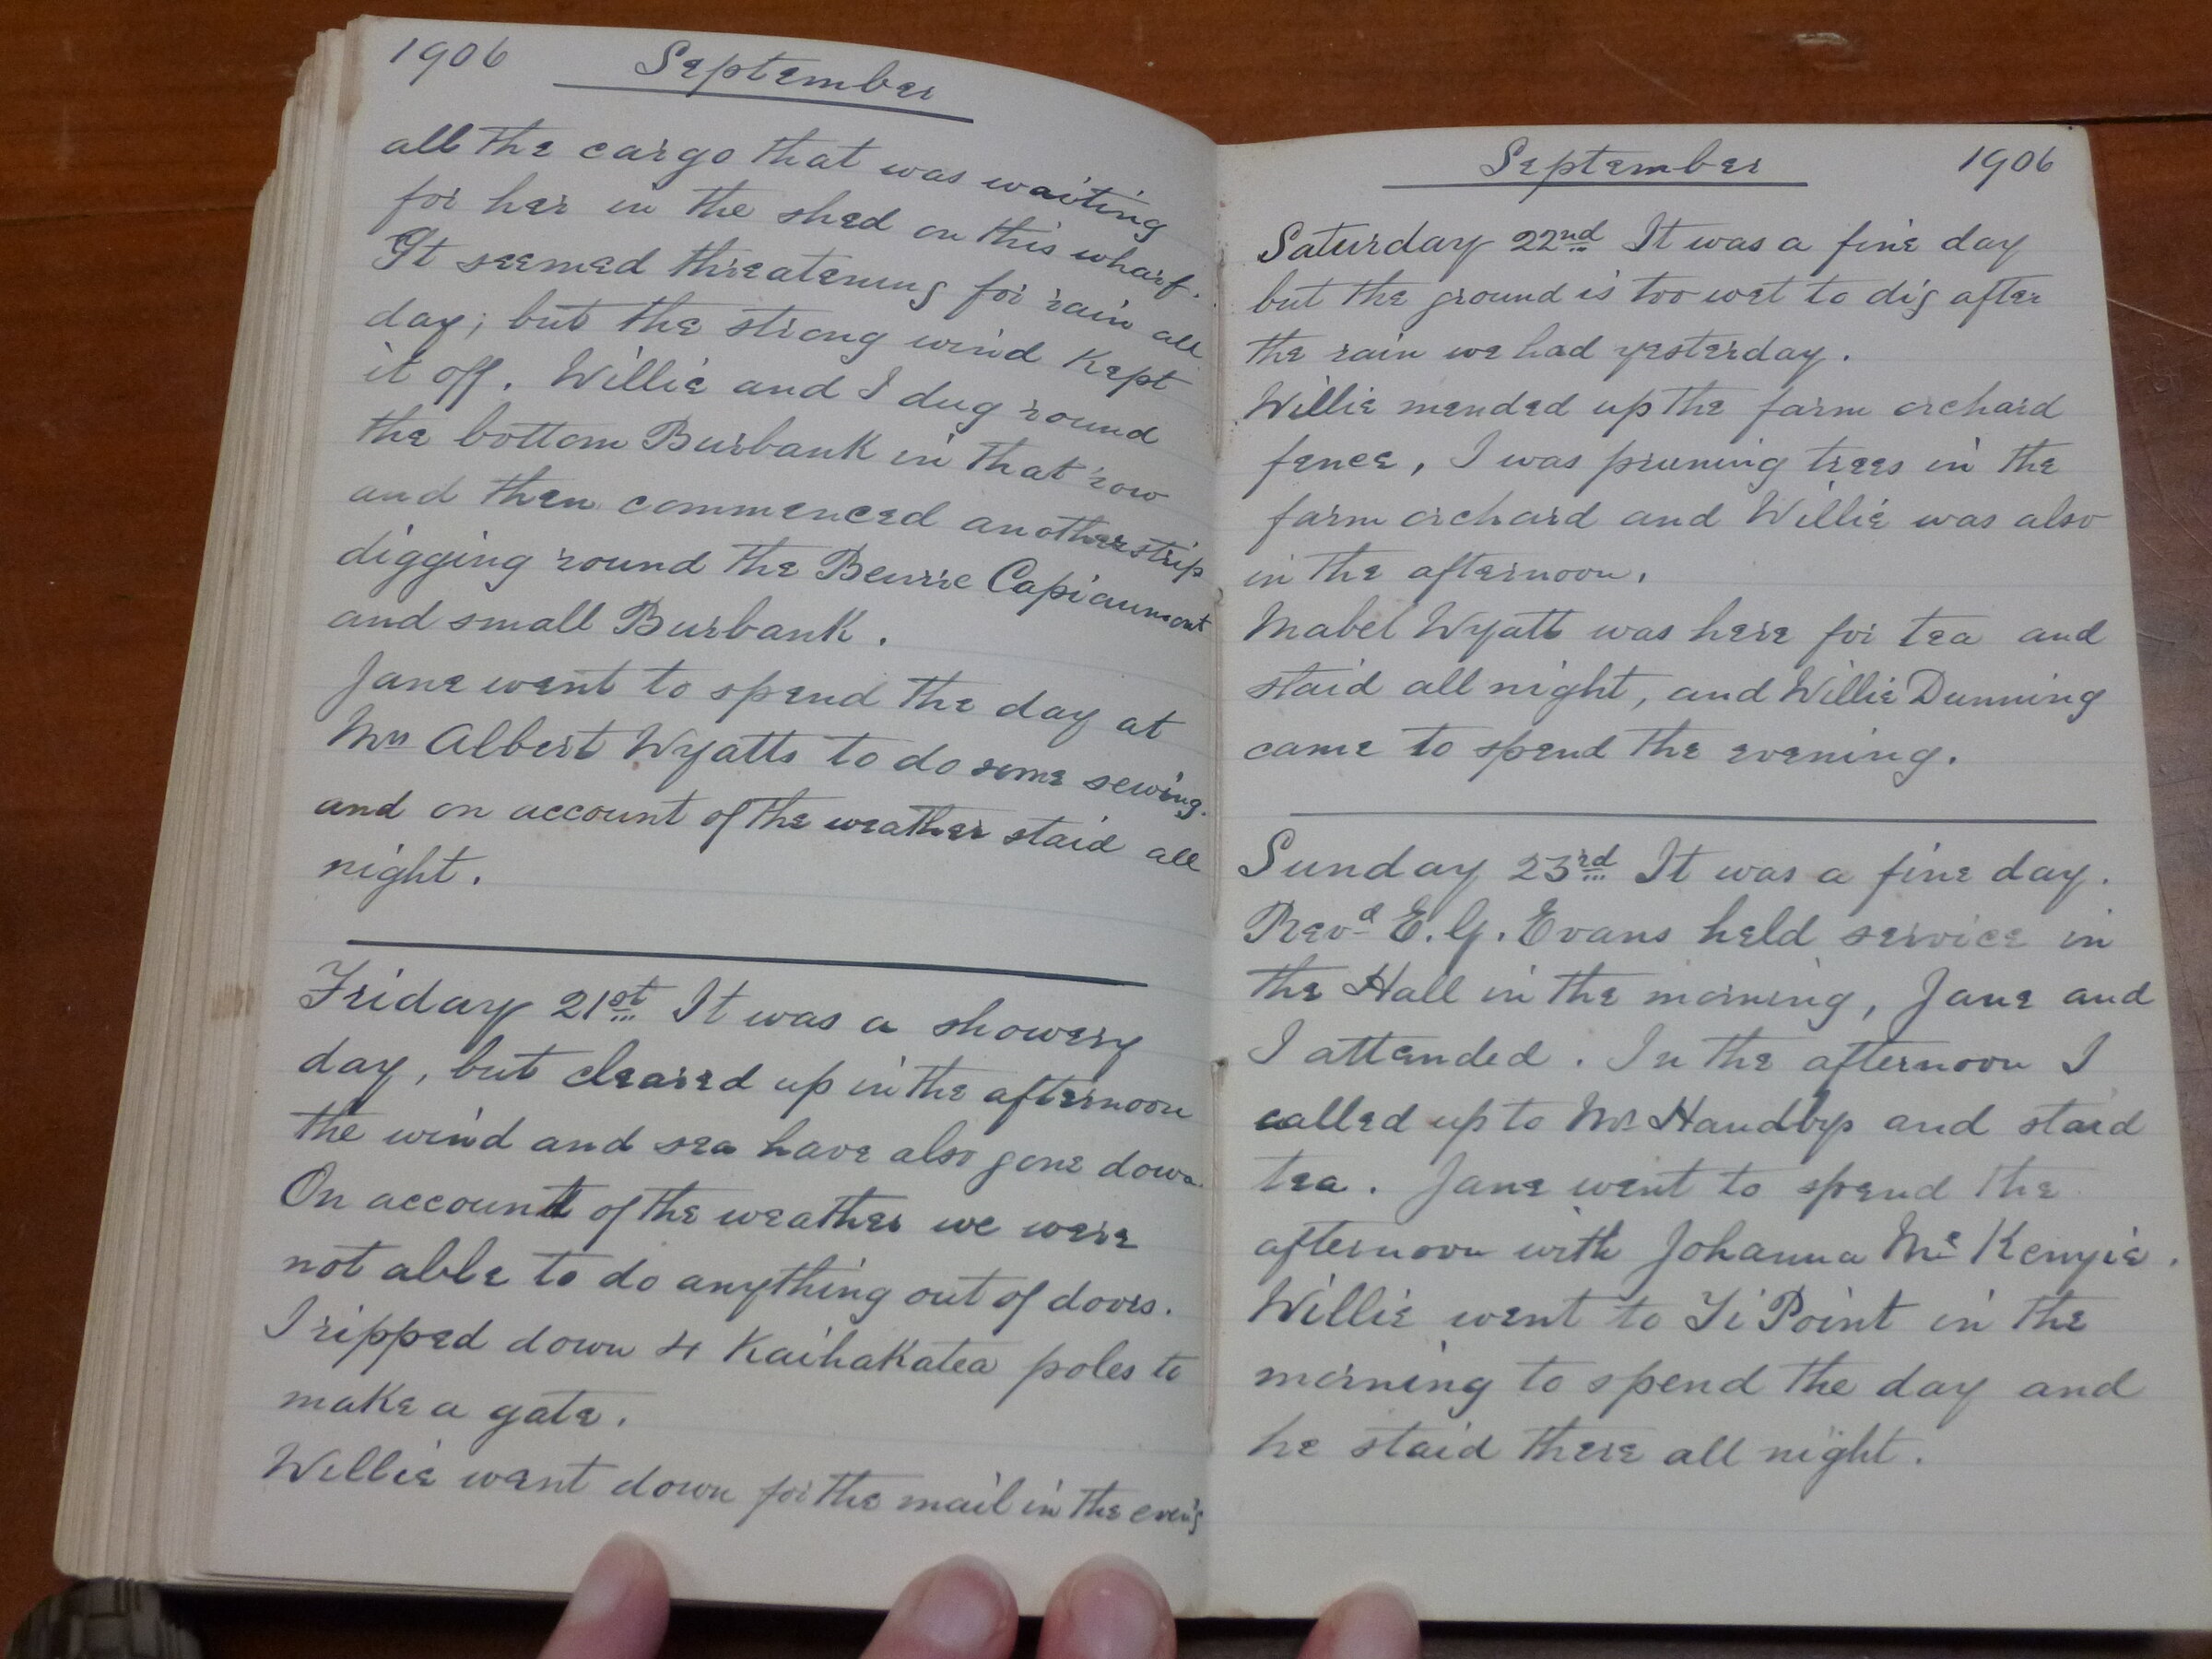 1906 September
all the cargo that was waiting
for her in the shed on this wharf.
It seemed threatening for rain all
day; but the strong wind kept
it off. Willie and I dug round
the bottom Burbank in that row
and then commenced another strip
digging round the Beurre Capiaumont
and small Burbank.
Jane went to spend the day at
Mrs Albert Wyatts to do some sewing.
and on account of the weather staid all
night.
Friday 21st It was a showery
day, but cleared up in the afternoon
the wind and sea have also gone down
On account of the weather we were
not able to do anything out of doors.
I ripped down 4 Kaihakatea poles to
make a gate.
Willie went down for the mail in the eveng
September 1906
Saturday 22nd It was a fine day
but the ground is too wet to dig after
the rain we had yesterday.
Willie mended up the farm orchard
fence, I was pruning trees in the
farm orchard and Willie was also
in the afternoon.
Mabel Wyatt was here for tea and
staid all night, and Willie Dunning
came to spend the evening.
Sunday 23rd It was a fine day.
Revd E. G. Evans held service in
the Hall in the morning, Jane and
I attended. In the afternoon I
called up to Mr Handbys and staid
tea. Jane went to spend the
afternoon with Johanna Mc Kenyie.
Willie went to Ti Point in the
morning to spend the day and
he staid there all night.